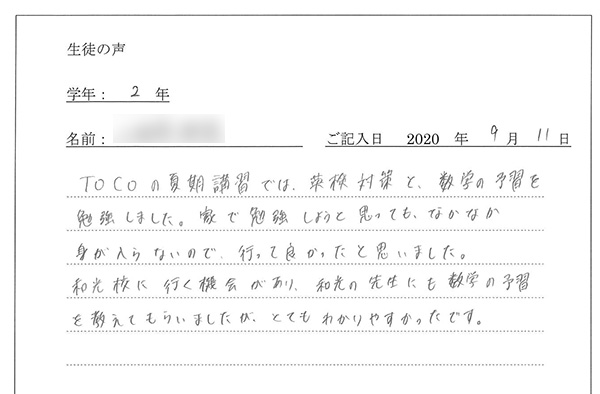 生徒の声
学年： 2 年
名前：
ご記入日 2020 年 9 月 11 日
TOCOの夏期講習では、英検対策と、数学の予習を
勉強しました。家で勉強しようと思っても、なかなか
身が入らないので、行って良かったと思いました。
和光校に行く機会があり、和光の先生にも数学の予習
を教えてもらいましたが、とてもわかりやすかったです。